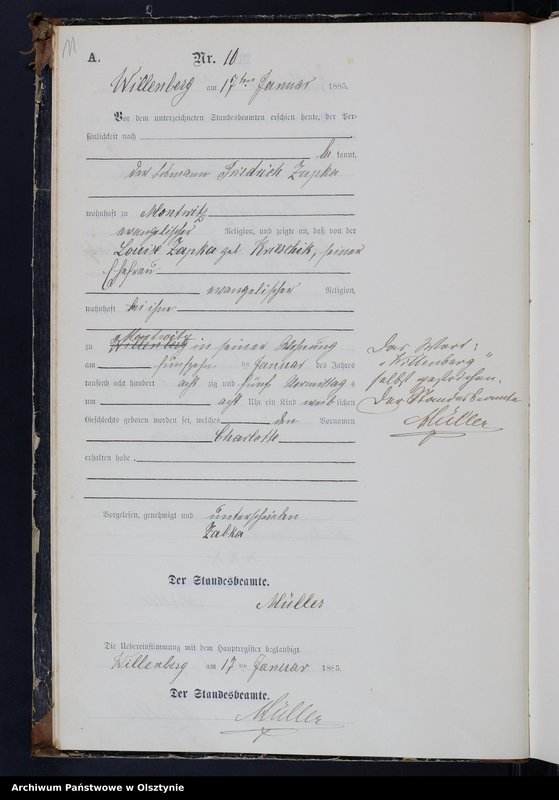 11
A.
Nr. 10
Willenberg am 17ten Januar 1885.
Vor dem unterzeichneten Standesbeamten erschien heute, der Per-
sönlichkeit nach
be kannt,
der Friedrich Zapka
wohnhaft zu Montwitz
evangelischer Religion, und zeigte an, daß von der
Louise Zapka geb. seiner
Ehefrau
evangelischer Religion,
wohnhaft bei ihm
Montwitz
zu Willenberg in seiner Wohnung
am fünfzehn ten Januar des Jahres
tausend acht hundert acht zig und fünf Vormittag s
um acht Uhr ein Kind weib lichen
Geschlechts geboren worden sei, welches den Vornamen
Charlotte
erhalten habe.
Vorgelesen, genehmigt und unterschrieben
Zabka
Der Standesbeamte.
Müller
Die Uebereinstimmung mit dem Hauptregister beglaubigt.
Willenberg am 17 ten Januar 1885.
Der Standesbeamte.
Müller
Das Wort:
"Willenberg"
selbst gestrichen.
Der Standesbeamte
Müller
Archiwum Państwowe w Olsztynie